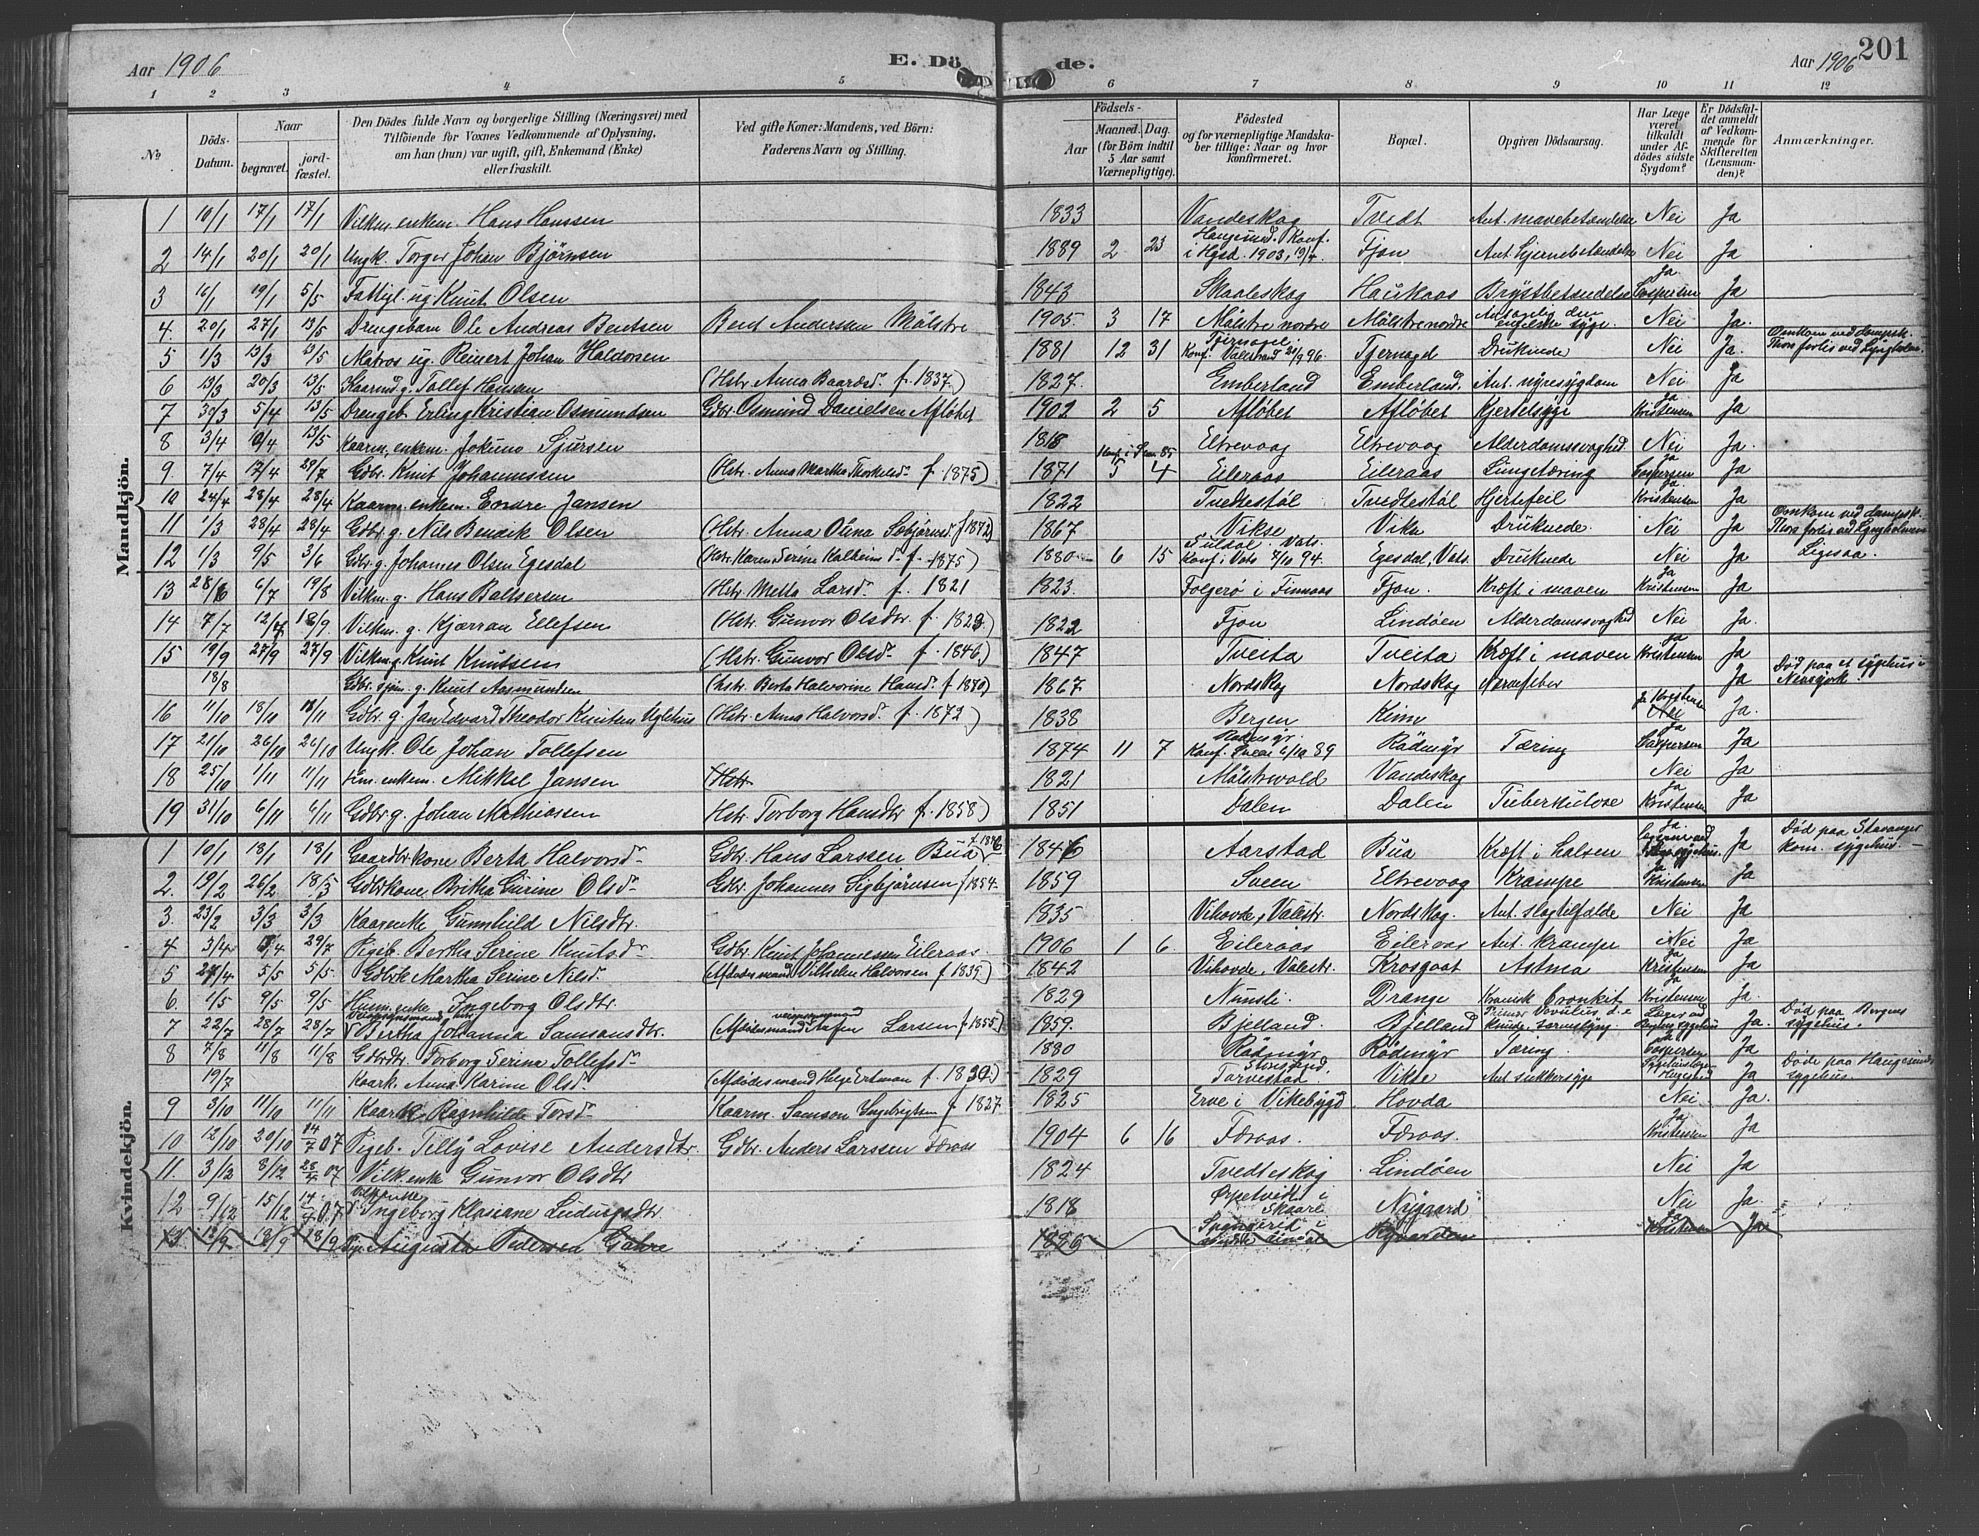 Aar 1906
E. Dö de.
Aar 1906 201
1 2 3 4 5 6 7 8 9 10 11 12
No. Döds-Datum. Naar begravet. jordfæstet. Den Dödes fulde Navn og borgerlige Stilling (Næringsvei) med Tilföiende for Voxnes Vedkommende af Oplysning, om han (hun) var ugift, gift, Enkemand (Enke) eller fraskilt. Ved gifte Koner: Mandens, ved Börn: Faderens Navn og Stilling. Födsels- Aar Maaned. Dag. (for Börn indtil 5 Aar samt Værnepligtige). Födested og for værnepligtige Mandskaber tillige: Naar og hvor konfirmeret. Bopæl. Opgiven Dödsaarsag. Har Læge været tilkaldt under Afdödes sidste Sygdom? Er Dödsfaldet anmeldt af Vedkommende for Skifteretten (Lensmanden)? Anmærkninger.
Mandkjön.
1 10/1 17/1 17/1 Vilkm. enkem. Hans Hanssen 1833 Vandeskog Tvedt Ant. mavebetændelse Nei Ja
2 14/1 20/1 20/1 Ungk. Torger Johan Bjørnsen 1889 2 23 Haugesund. Konf. i Hgsd. 1903, 19/4. Fjon Ant. hjernebetændelse Nei Ja
3 16/1 19/1 5/5 Fattigl. ug. Knut Olsen 1843 Skaaleskog Haukaas Brystbetændelse Ja Caspersen Ja
4. 20/1 27/1 13/5 Drengebarn Ole Andreas Bentsen Bent Anderssen Mølstre 1905. 3 17 Mølstre nordre Mølstre nordre Antagelig den engelske syge. Nei Ja.
5 1/3 13/3 Matros ug. Reinert Johan Haldorsen 1881 12 31 Tjernagel, Konf. Valestrand 96. Tjernagel Druknede Nei Ja. Omkom ved dampsk. Thors forlis ved Lyngholm.
6 13/3 20/3 13/5 Kaarmd. g. Tollef Hansen (Hstr. Anna Baardsd. f. 1837.) 1827. Emberland Emberland. Ant. nyresygdom Nei Ja
7 30/3 5/4 13/5 Drengeb. Erling Kristian Osmundsen Gdbr. Osmund Danielsen Afløbet 1902 2 5 Afløbet Afløbet Kjertelsyge Ja Kristensen Ja
8 3/4 10/4 13/5 Kaarm. enkem. Jokum Sjursen 1818 Eltrevaag Eltrevaag Alderdomssvaghed. Nei Ja.
9 7/4 17/4 29/7 Gdbr. Knut Johannessen (Hstr. Anna Martha Thorkelsd. f. 1875) 1871 5 4 Eileraas Eileraas Lungetæring Ja Caspersen Ja
10 24/4 28/4 28/4 Kaarm. enkem. Endre Jansen 1822 Tvedtestøl Tvedtestøl Hjertefeil Ja Kristensen Ja
11 1/3 28/4 28/4 Gdbr. g. Nils Bendik Olsen (Hstr. Anna Olina Sebjørnsd. f 1872) 1867 Vikse Vikse Druknede. Nei Ja Omkom ved dampsk. Thors forlis ved Lyngholmen
12 1/3 9/5 3/6 Gdbr. g. Johannes Olsen Egesdal (Hstr. Karen Serine f. 1875) 1880 6 15 Suldal. Vats. Konf. i Vats 7/10 94. Egesdal, Vats. Druknede Nei Ja Ligesaa.
13 28/6 6/7 19/8 Vilkm. g. Hans Baltsersen (Hstr. Metta Larsd. f. 1821 1823. Folgerø i Finnaas Fjon. Kræft i maven Ja Kristensen Ja
14 7/7 12/7 16/9 Vilkm. g. Kjærran Ellefsen (Hstr. Gunvor Olsdtr. f. 1823.) 1822 Fjon Lindøen Alderdomssvaghed Nei Ja.
15 19/9 27/9 27/9 Vilkm. g. Knut Knutsen (Hstr. Gunvor Olsd. f. 1846.) 1847 Tveita Tveita Kræft i maven Ja Kristensen Ja
18/8 Gdbr. g. Knut Aasmundsen (hstr. Berta Halvorine Hansd. f 1870) 1867 Nordskog Nordskog Nervefeber Ja Død paa et sygehus i Newyork.
16 11/10 18/10 18/11 Gdbr. g. Jan Edvard Theodor Knutsen Uglehus (Hstr. Anna Halvorsd. f. 1872) 1838 Bergen Kinn Ja Kristensen Nei Ja.
17 21/10 26/10 26/10 Ungk. Ole Johan Tollefsen 1874 11 7 Rødmyr. Konf. Sveen 6/10 89 Rødmyr Tæring Ja Caspersen Ja
18 25/10 1/11 11/11 enkem. Mikkel Jansen (Hstr. 1821 Mølstrevold Vandeskog Nei Ja
19 31/10 6/11 6/11 Gdbr. g. Johan Mathiassen Hstr. Torborg Hansdtr f. 1858) 1851 Dalen Dalen Tuberkulose Ja Kristensen Ja
Kvindekjön.
1 10/1 18/1 18/1 Gaardbr. kone Berta Halvorsd. Gdbr. Hans Larssen Bua f. 1846 1846 Aarstad Bua Kræft i halsen Ja Ja Død paa Stavanger kom. sygehus.
2. 19/2 26/2 18/3 Gdbrkone Britha Gurine Olsd. Gdbr. Johannes Sigbjørnsen f 1854. 1859 Sveen Eltrevaag Krampe Ja Kristensen Ja
3. 23/2 3/3 3/3 Kaarenke Gunnhild Nilsdtr. 1835 Vihovde, Valestr. Nordskog. Ant. slagtilfælde Nei Ja
4 3/4 29/7 Pigeb. Bertha Serine Knutsd. Gdbr. Knut Johannessen Eileraas 1906 1 6. Eileraas Eileraas Ant. krampe Nei Ja
5 27/4 5/5 5/5. Gdbrk. Martha Serine Nilsd. (Afdødes mand Vilhelm Halvorsen f 1839) 1842 Vihovde, Valestr. Krosgaat Astma Ja Kristensen Ja
6. 1/5 9/5 9/5 Husm. enke Ingeborg Olsdtr. 1829 Nunsli. Drange Kronisk Bronkit Ja Kristensen Ja.
7 22/7 28/7 28/7 Bertha Johanna Samsonsdtr. (Afdødes mand Larsen f. 1855) 1859. Bjelland. Bjelland Ja. Død paa Bergens sygehus.
8 7/8 11/8 11/8 Gdbrdtr. Torborg Serina Tollefsd. 1880 Rødmyr Rødmyr Tæring. Ja Caspersen Ja
19/7 Kaark. Anna Karine Olsd. (Afdødes mand Helge Ertman f. 1830.) 1829 Storesund, Torvestad Vikse Ant. sukkersyge Ja Døde paa Haugesunds sygehus.
9 3/10 11/10 11/11 Kaark. Ragnhilde Torsd. Kaarm. Samson Ingebrigtsen f 1827 1825 Erve i Vikebygd Hovda Nei. Ja.
10 12/10 20/10 14/7 07 Pigeb. Tilly Lovise Andersdtr. Gdbr. Anders Larssen Færaas 1904 6 16 Færaas. Færaas. Ja Kristensen Ja
11. 3/12 8/12 28/4 07 Vilk. enke Gunvor Olsdtr 1824 Tvedteskog Lindøen Nei Ja
12 9/12 15/12 14/4 07 Vilk. enke Ingeborg Klasiane Ludvigsdtr 1818 Ørpetvedt i Skaare Nygaard Nei Ja.
13 12/9 18/9 18/9 Augusta Pedersen Gahre 1886 Ja Kristensen Ja